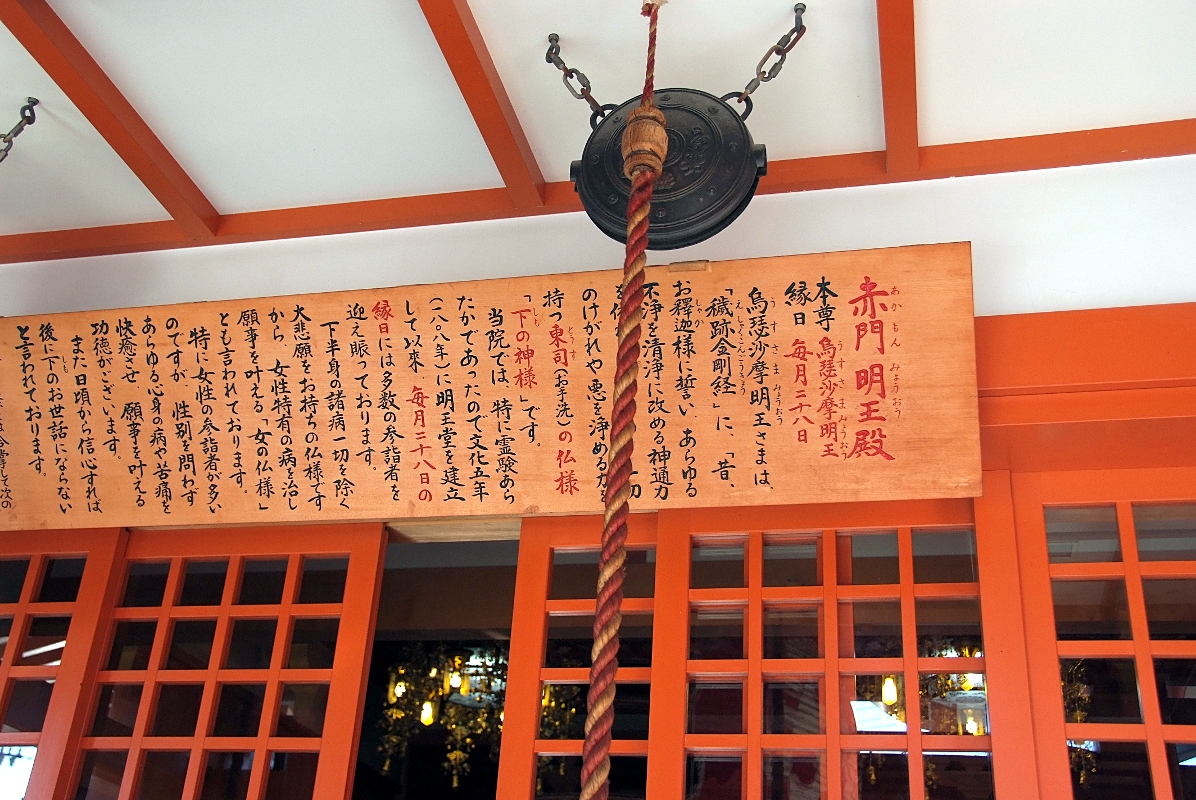 赤門 明王殿
本尊 烏瑟沙摩明王
縁日 毎月二十八日
烏瑟沙摩明王さまは、
「穢跡金剛経」に、「昔、
お釋迦様に誓い、あらゆる
不浄を清浄に改める神通力
のけがれや悪を浄める力を
持つ東司(お手洗)の仏様
「下の神様」です。
当院では、特に霊験あら
たかであったので文化五年
(一八〇八年)に明王堂を建立
して以来 毎月二十八日の
縁日には多数の参詣者を
迎え賑っております。
下半身の諸病一切を除く
大悲願をお持ちの仏様です
から、女性特有の病を治し
願事を叶える「女の仏様」
とも言われております。
特に女性の参詣者が多い
のですが、性別を問わず
あらゆる心身の病や苦痛を
快癒させ 願事を叶える
功徳がございます。
また日頃から信心すれば、
後に下のお世話にならない
と言われております。